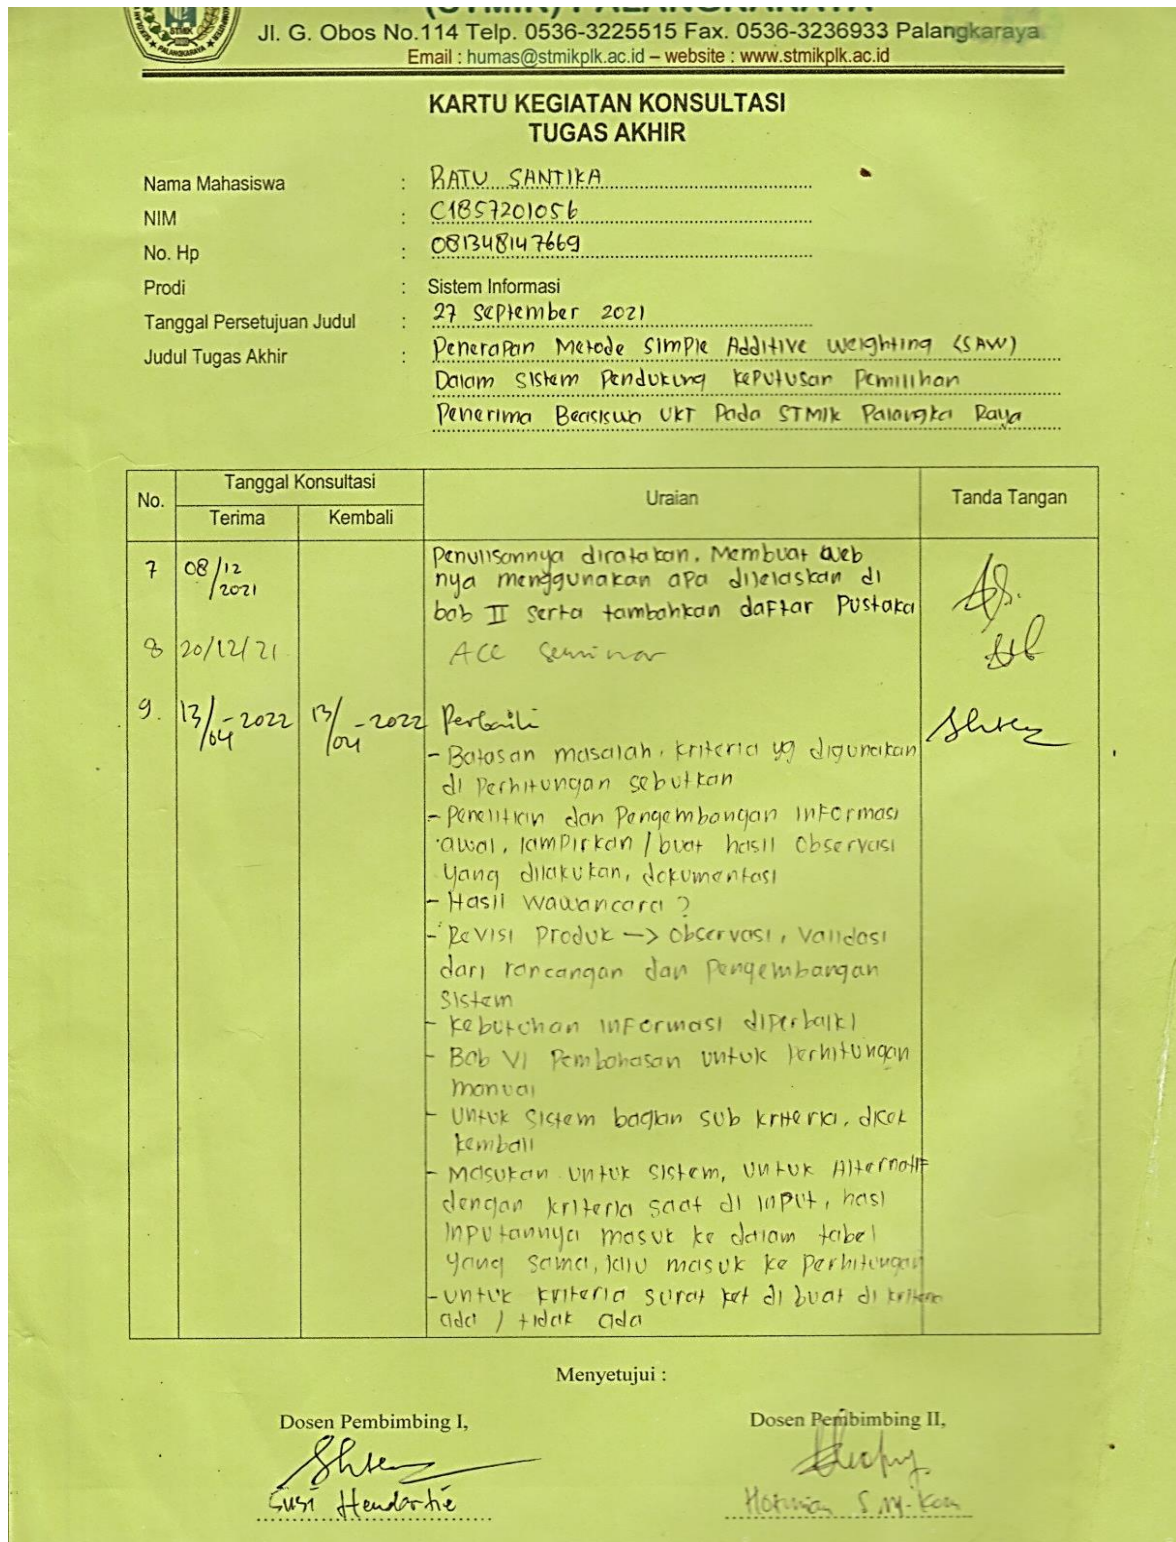 (STMIK) PALANGKARAYA
Jl. G. Obos No.114 Telp. 0536-3225515 Fax. 0536-3236933 Palangkaraya
Email : humas@stmikplk.ac.id – website : www.stmikplk.ac.id
KARTU KEGIATAN KONSULTASI
TUGAS AKHIR
Nama Mahasiswa : RATU SANTIKA
NIM : C1857201056
No. Hp : 081348147669
Prodi : Sistem Informasi
Tanggal Persetujuan Judul : 27 September 2021
Judul Tugas Akhir : Penerapan Metode Simple Additive Weighting (SAW)
Dalam Sistem Pendukung Keputusan Pemilihan
Penerima Beasiswa UKT Pada STMIK Palangka Raya
No. Tanggal Konsultasi Uraian Tanda Tangan
Terima Kembali
7 08/12 2021 Penulisannya diratakan. Membuat web
nya menggunakan apa dijelaskan di
bab II serta tambahkan daftar Pustaka
8 20/12/21 ACC Seminar
9. 13/04-2022 13/04-2022 Perbaiki
- Batasan masalah, kriteria yg digunakan
di Perhitungan sebutkan
- Penelitian dan Pengembangan informasi
awal, lampirkan / buat hasil observasi
yang dilakukan, dokumentasi
- Hasil wawancara ?
- Revisi Produk -> observasi, validasi
dari rancangan dan Pengembangan
Sistem
- kebutuhan informasi diperbaiki
- Bab VI Pembahasan untuk Perhitungan
manual
- Untuk Sistem bagian sub kriteria, dicek
kembali
- Masukan untuk sistem, untuk Alternatif
dengan kriteria saat di input, hasl
inputannya masuk ke dalam tabel
yang sama, lalu masuk ke Perhitungan
- untuk kriteria surat ket di buat di kriteria
ada / tidak ada
Menyetujui :
Dosen Pembimbing I, Dosen Pembimbing II,
Susi Hendartie Hotmian S M.Kom